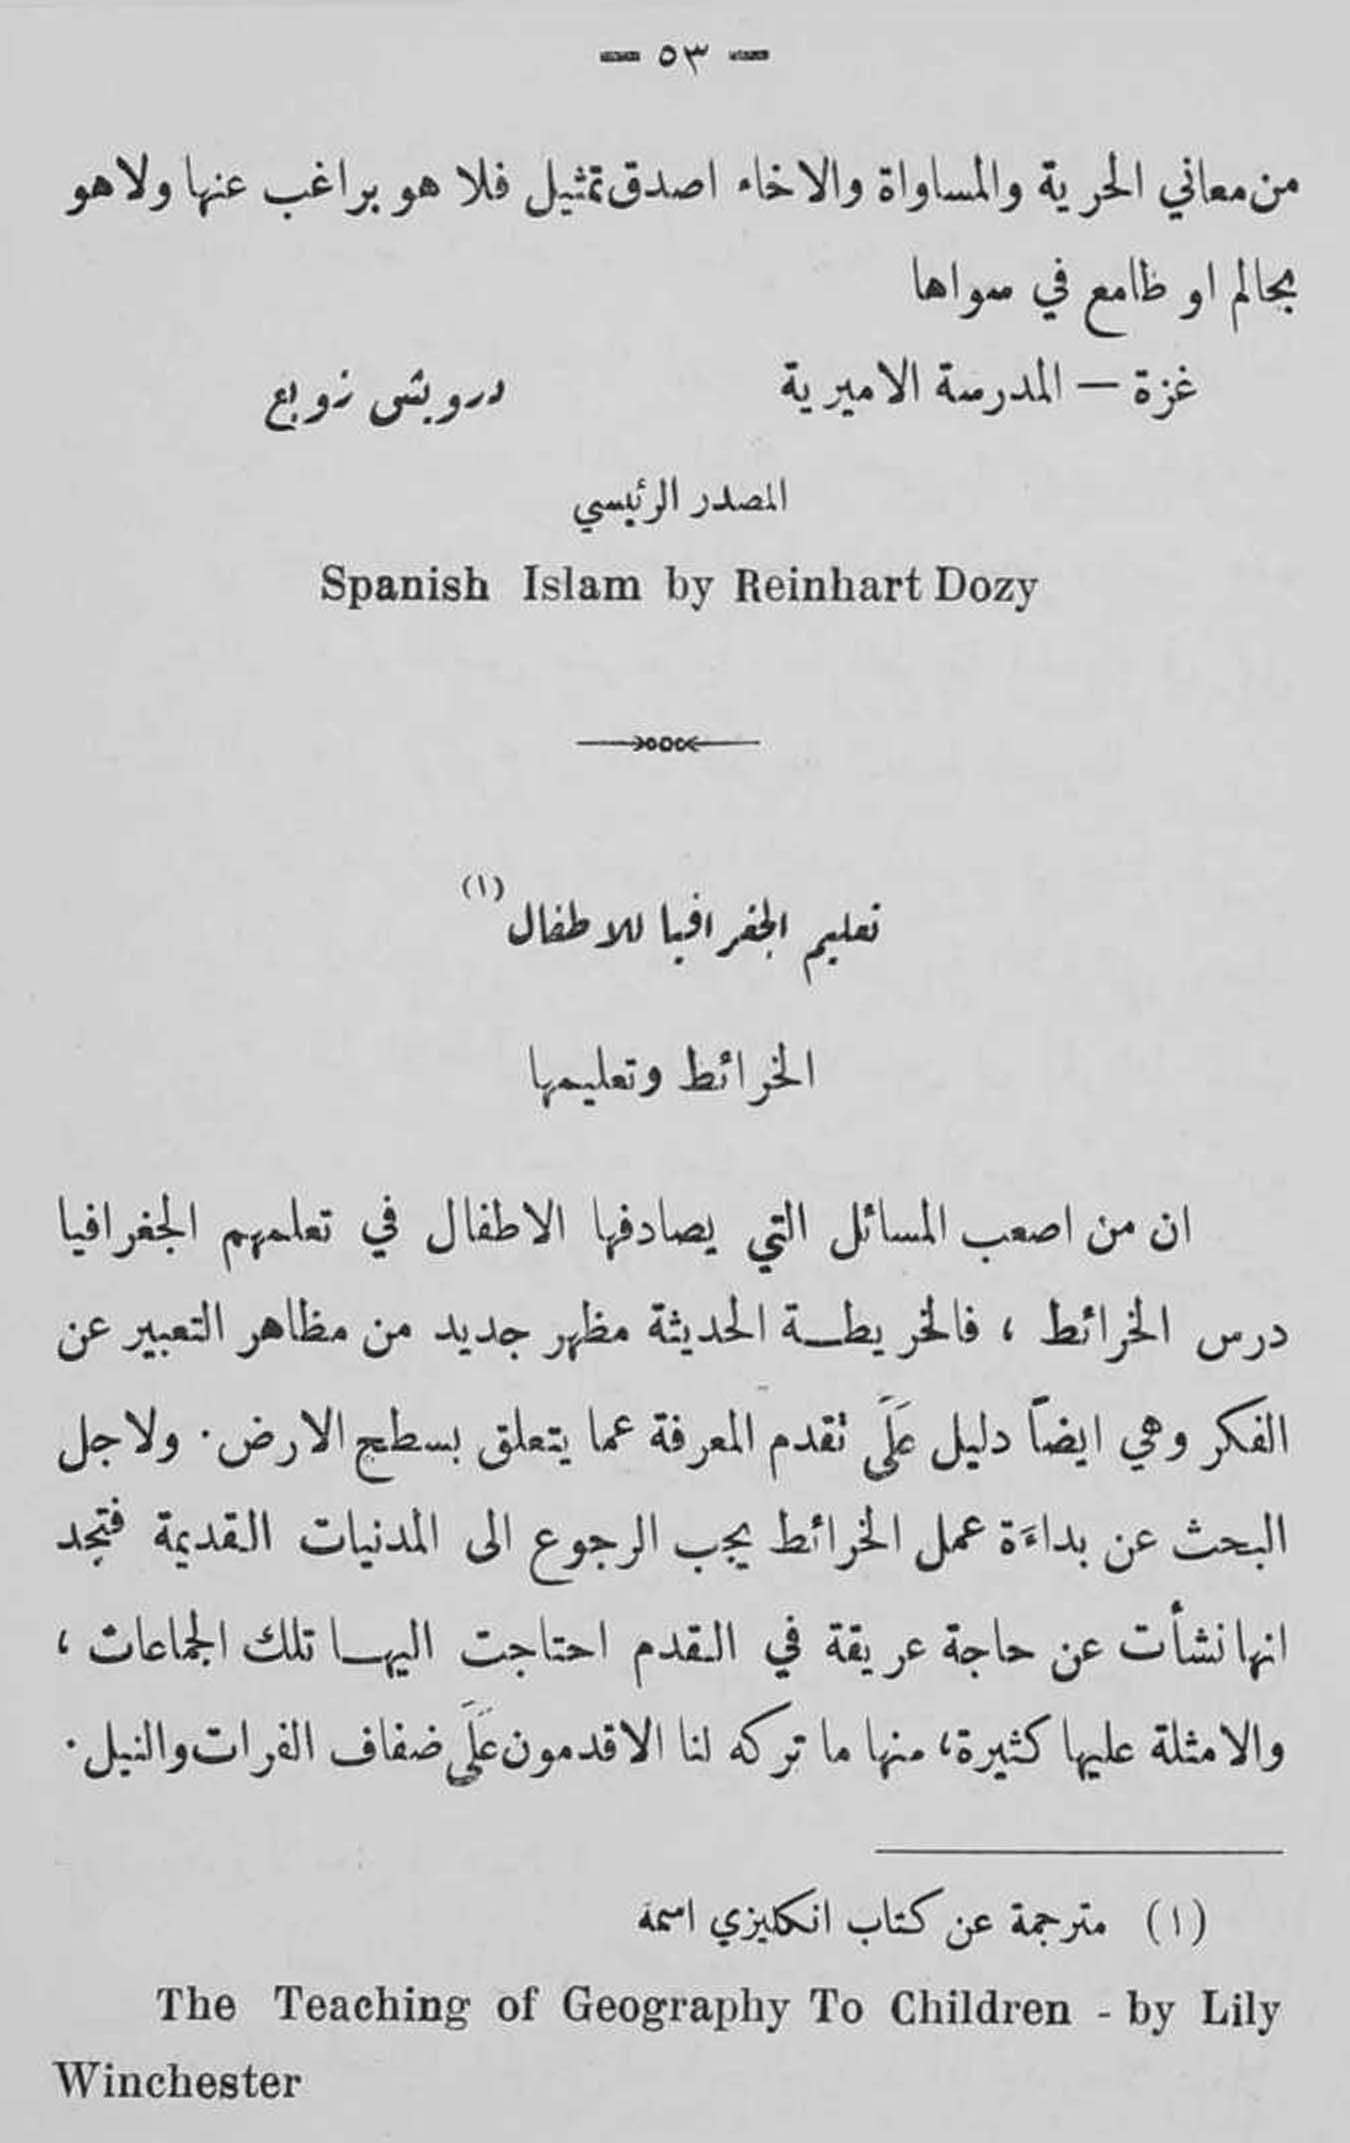 — ٥٣ —
من معاني الحرية والمساواة والاخاء اصدق تمثيل فلا هو براغب عنها ولا هو
بحالم او طامع في سواها
غزة — المدرسة الاميرية درويش زويع
المصدر الرئيسي
Spanish Islam by Reinhart Dozy
تعليم الجغرافيا للاطفال (١)
الخرائط وتعليمها
ان من اصعب المسائل التي يصادفها الاطفال في تعلمهم الجغرافيا
درس الخرائط ، فالخريطـة الحديثة مظهر جديد من مظاهر التعبير عن
الفكر وهي ايضاً دليل عَلَى تقدم المعرفة عما يتعلق بسطح الارض . ولاجل
البحث عن بداءَة عمل الخرائط يجب الرجوع الى المدنيات القديمة فتجد
انها نشأت عن حاجة عريقة في القدم احتاجت اليهـا تلك الجماعات ،
والامثلة عليها كثيرة، منها ما تركه لنا الاقدمون عَلَى ضفاف الفرات والنيل .
(١) مترجمة عن كتاب انكليزي اسمه
The Teaching of Geography To Children - by Lily
Winchester